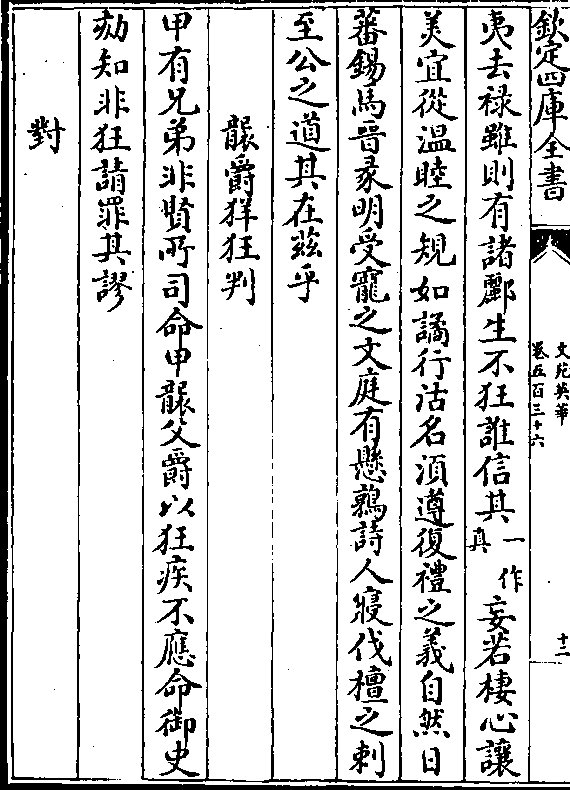 欽定四庫全書
文苑英華
卷五百三十六
十二
夷去禄雖則有諸酈生不狂誰信其一作真妄若棲心讓
美宜從温睦之規如譎行沽名湏遵復禮之義自然日
蕃錫馬晉彖明受寵之文庭有懸鶉詩人寢伐檀之刺
至公之道其在兹乎
襲爵佯狂判
甲有兄弟非賢所司命甲襲父爵以狂疾不應命御史
劾知非狂請罪其謬
對